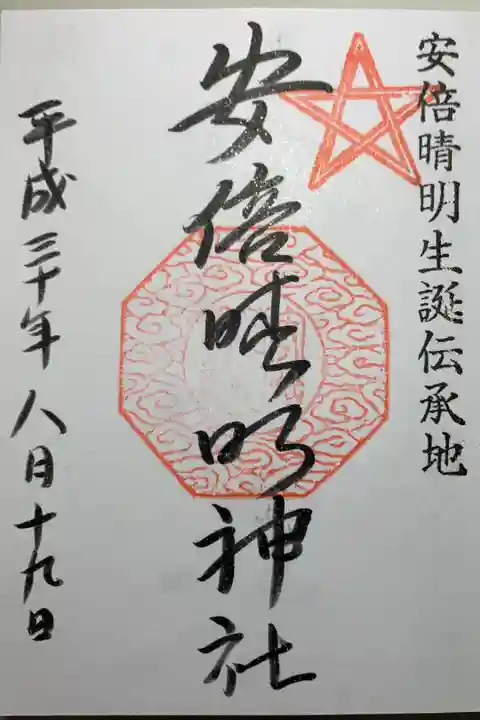 安倍晴明生誕伝承地
安倍晴明神社
平成三十年八月十九日